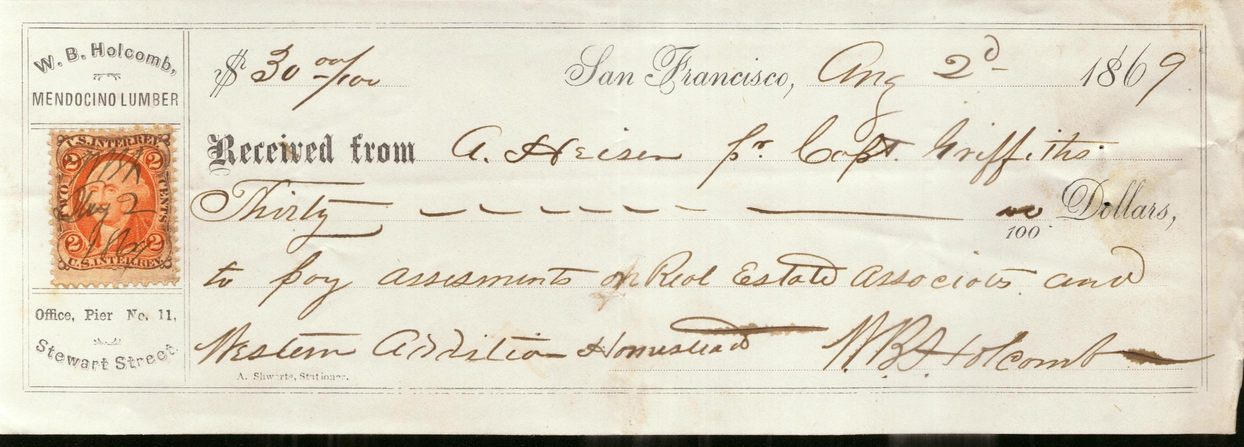 W. B. Holcomb,
MENDOCINO LUMBER
U.S. INTER. REV.
2 2
TWO CENTS
Aug 2
1869
2 2
U.S. INTER. REV.
Office, Pier No. 11,
Stewart Street.
$ 30 00/100 San Francisco, Aug 2d 1869
Received from A. Heisen pr. Capt. Griffiths
Thirty no/100 Dollars,
to pay assesments on Real Estate Associates and
Western Addition Homestead W.B. Holcomb
A. Shwarts, Stationer.